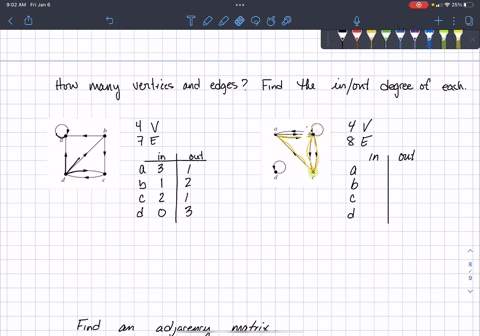 9:02 AM Fri Jan 6
25%
How many vertices and edges? Find the in/out degree of each.
a b
d c
4 V
7 E
in out
a 3 1
b 1 2
c 2 1
d 0 3
a
d
4 V
8 E
in out
a
b
c
d
Find an adjacency matrix